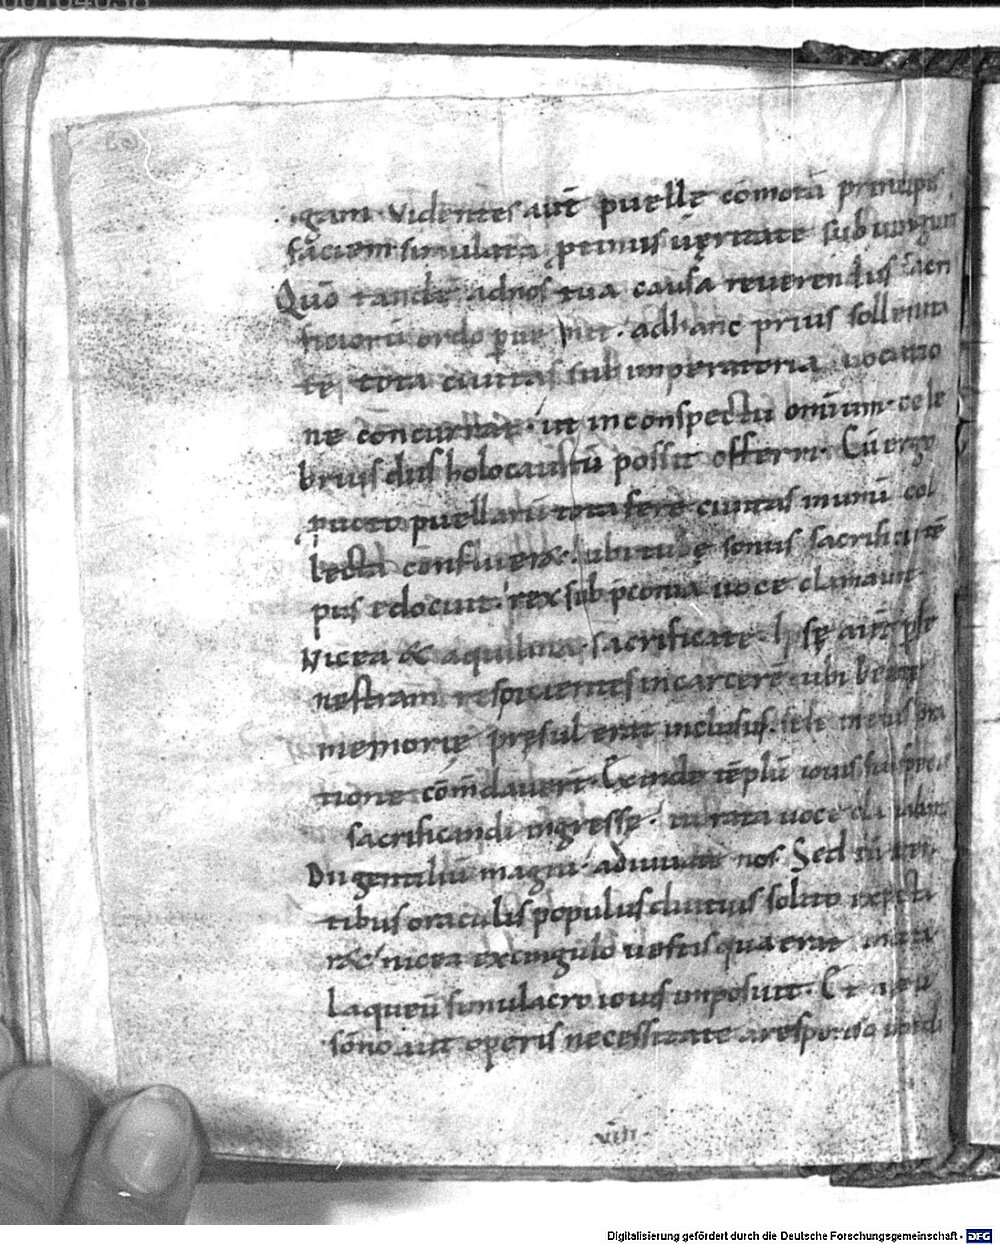 00104038
gam. Videntes aut̄ puelle cōmotā principis
faciem simulata primus uęritate subiungun
Quō tandē ad nos tua causa reuerendus sacri
ficiorū ordo adhanc prius sollemni
tota ciuitas sub imperatoria uocatio
ne concurrat ut inconspectu omium cele
brius diis holocaustū possit offerri. Cū ergo
puellarū tota fere ciuitas in unū col
lecta confluerx& ubi tubę sonus sacrificii tē
pus edocuit. rex sub p̄conia uoce clamauit
Nicea & aquilina sacrificate. Ipsę aut̄
nestram respicientes in carcerē ubi beatę
memorię pręsul erat inclusus. sese
tione cōm̄dauer̄t. Exinde tēplū iouis
sacrificandi ingressę. iterata uoce
Dii gentiliū magni adiuuate nos. Sed
tibus oraculis populus diutius solito
nicea excingulo uestis qua erat
laqueū simulacro iouis imposuit. Et
sōno aut operis necessitate a responso
viii
Digitalisierung gefördert durch die Deutsche Forschungsgemeinschaft - DFG